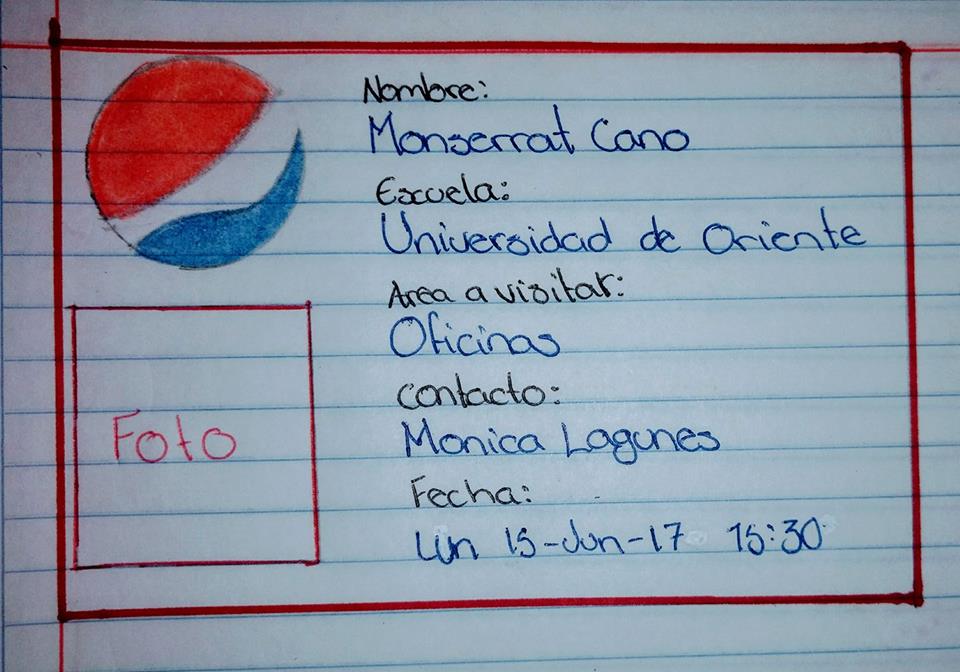 Nombre:
Monserrat Cano
Escuela:
Universidad de Oriente
Area a visitar:
Oficinas
Contacto:
Monica Lagunes
Foto
Fecha:
Lun 15-Jun-17 15:30